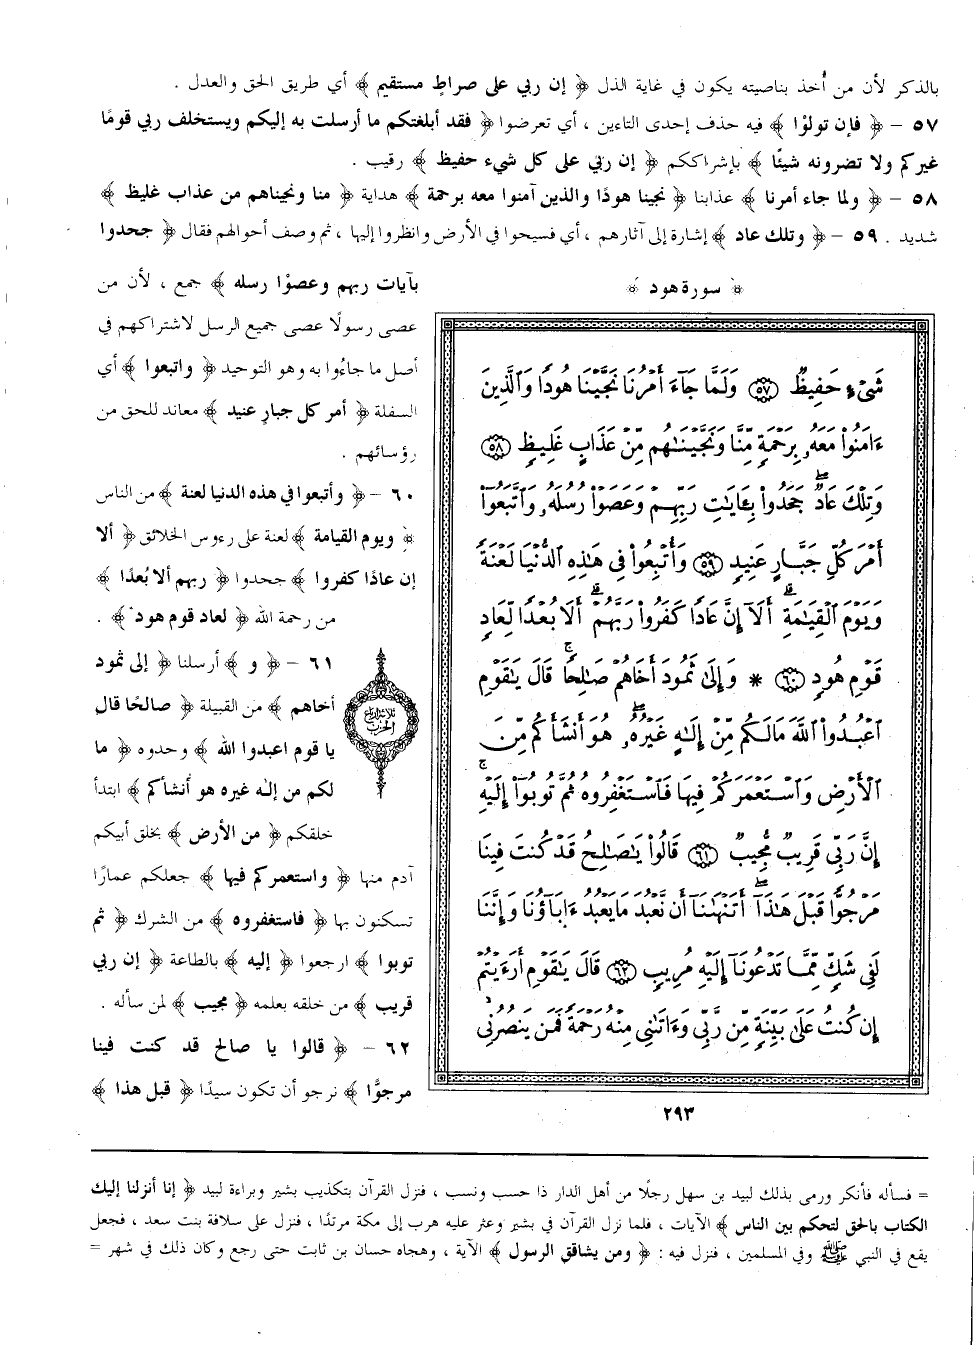 بالذكر لأن من أُخذ بناصيته يكون في غاية الذل ﴿ إن ربي على صراطٍ مستقيم ﴾ أي طريق الحق والعدل .
٥٧ - ﴿ فإن تولوْا ﴾ فيه حذف إحدى التاءين ، أي تعرضوا ﴿ فقد أبلغتكم ما أرسلت به إليكم ويستخلف ربي قومًا
غيركم ولا تضرونه شيئًا ﴾ بإشراككم ﴿ إن ربي على كل شيء حفيظ ﴾ رقيب .
٥٨ - ﴿ ولما جاء أمرنا ﴾ عذابنا ﴿ نجينا هودًا والذين آمنوا معه برحمة ﴾ هداية ﴿ منا ونجيناهم من عذاب غليظ ﴾
شديد . ٥٩ - ﴿ وتلك عاد ﴾ إشارة إلى آثارهم ، أي فسيحوا في الأرض وانظروا إليها ، ثم وصف أحوالهم فقال ﴿ جحدوا
بآيات ربهم وعصوْا رسله ﴾ جمع ، لأن من
عصى رسولًا عصى جميع الرسل لاشتراكهم في
أصل ما جاءُوا به وهو التوحيد ﴿ واتبعوا ﴾ أي
السفلة ﴿ أمر كل جبارٍ عنيد ﴾ معاند للحق من
رؤسائهم .
٦٠ - ﴿ وأتبعوا في هذه الدنيا لعنة ﴾ من الناس
﴿ ويوم القيامة ﴾ لعنة على رءوس الخلائق ﴿ ألا
إن عادًا كفروا ﴾ جحدوا ﴿ ربهم ألا بُعدًا ﴾
من رحمة الله ﴿ لعاد قوم هود ﴾ .
٦١ - ﴿ و ﴾ أرسلنا ﴿ إلى ثمود
أخاهم ﴾ من القبيلة ﴿ صالحًا قال
يا قوم اعبدوا الله ﴾ وحدوه ﴿ ما
لكم من إلٰه غيره هو أنشأكم ﴾ ابتدأ
خلقكم ﴿ من الأرض ﴾ بخلق أبيكم
آدم منها ﴿ واستعمركم فيها ﴾ جعلكم عمارًا
تسكنون بها ﴿ فاستغفروه ﴾ من الشرك ﴿ ثم
توبوا ﴾ ارجعوا ﴿ إليه ﴾ بالطاعة ﴿ إن ربي
قريب ﴾ من خلقه بعلمه ﴿ مجيب ﴾ لمن سأله .
٦٢ - ﴿ قالوا يا صالح قد كنت فينا
مرجوًّا ﴾ نرجو أن تكون سيدًا ﴿ قبل هذا ﴾
﴿ سورة هود ﴾
شَىْءٍ حَفِيظٌ ٥٧ وَلَمَّا جَآءَ أَمْرُنَا نَجَّيْنَا هُودًا وَٱلَّذِينَ
ءَامَنُوا۟ مَعَهُۥ بِرَحْمَةٍ مِّنَّا وَنَجَّيْنَٰهُم مِّنْ عَذَابٍ غَلِيظٍ ٥٨
وَتِلْكَ عَادٌ ۖ جَحَدُوا۟ بِـَٔايَٰتِ رَبِّهِمْ وَعَصَوْا۟ رُسُلَهُۥ وَٱتَّبَعُوٓا۟
أَمْرَ كُلِّ جَبَّارٍ عَنِيدٍ ٥٩ وَأُتْبِعُوا۟ فِى هَٰذِهِ ٱلدُّنْيَا لَعْنَةً
وَيَوْمَ ٱلْقِيَٰمَةِ ۗ أَلَآ إِنَّ عَادًا كَفَرُوا۟ رَبَّهُمْ ۗ أَلَا بُعْدًا لِّعَادٍ
قَوْمِ هُودٍ ٦٠ * وَإِلَىٰ ثَمُودَ أَخَاهُمْ صَٰلِحًا ۚ قَالَ يَٰقَوْمِ
ٱعْبُدُوا۟ ٱللَّهَ مَا لَكُم مِّنْ إِلَٰهٍ غَيْرُهُۥ ۖ هُوَ أَنشَأَكُم مِّنَ
ٱلْأَرْضِ وَٱسْتَعْمَرَكُمْ فِيهَا فَٱسْتَغْفِرُوهُ ثُمَّ تُوبُوٓا۟ إِلَيْهِ ۚ
إِنَّ رَبِّى قَرِيبٌ مُّجِيبٌ ٦١ قَالُوا۟ يَٰصَٰلِحُ قَدْ كُنتَ فِينَا
مَرْجُوًّا قَبْلَ هَٰذَآ ۖ أَتَنْهَىٰنَآ أَن نَّعْبُدَ مَا يَعْبُدُ ءَابَآؤُنَا وَإِنَّنَا
لَفِى شَكٍّ مِّمَّا تَدْعُونَآ إِلَيْهِ مُرِيبٍ ٦٢ قَالَ يَٰقَوْمِ أَرَءَيْتُمْ
إِن كُنتُ عَلَىٰ بَيِّنَةٍ مِّن رَّبِّى وَءَاتَىٰنِى مِنْهُ رَحْمَةً فَمَن يَنصُرُنِى
ثلاثة أرباع
الحزب
٢٩٣
= فسأله فأنكر ورمى بذلك لبيد بن سهل رجلًا من أهل الدار ذا حسب ونسب ، فنزل القرآن بتكذيب بشير وبراءة لبيد ﴿ إنا أنزلنا إليك
الكتاب بالحق لتحكم بين الناس ﴾ الآيات ، فلما نزل القرآن في بشير وعثر عليه هرب إلى مكة مرتدًا ، فنزل على سلافة بنت سعد ، فجعل
يقع في النبي ﷺ وفي المسلمين ، فنزل فيه : ﴿ ومن يشاقق الرسول ﴾ الآية ، وهجاه حسان بن ثابت حتى رجع وكان ذلك في شهر =